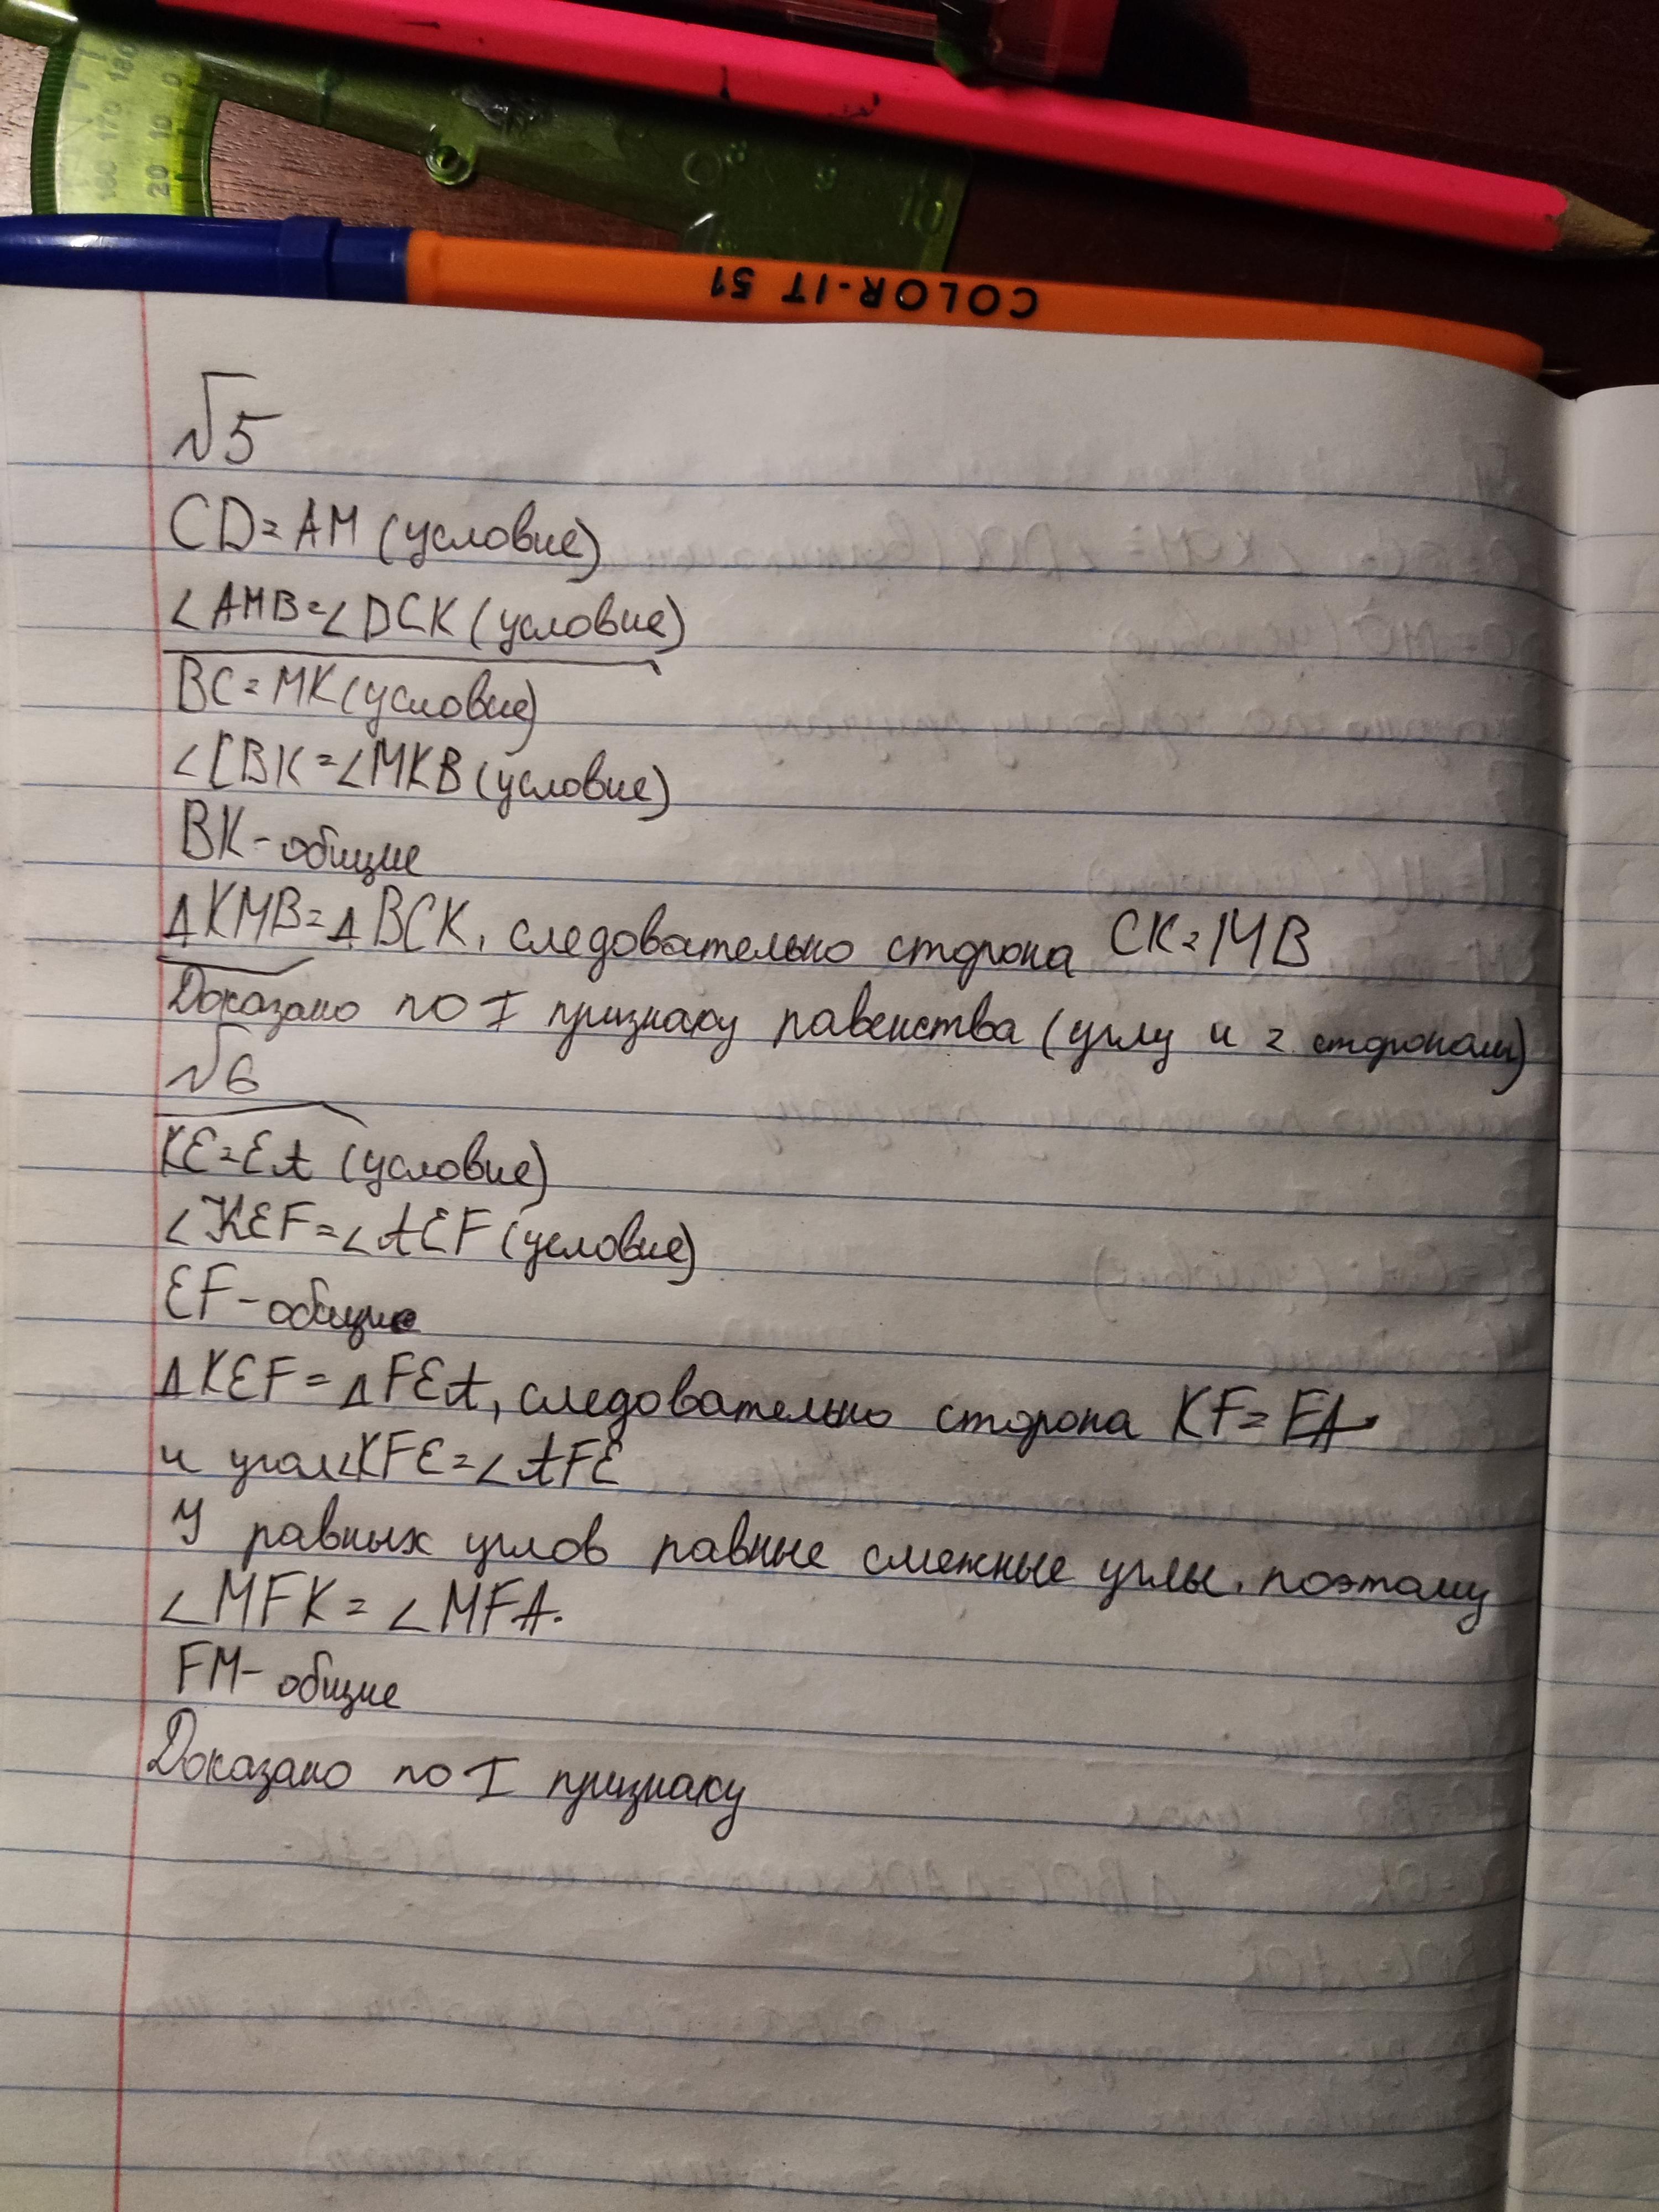 180
170
160
0
10
20
8
9
10
COLOR-IT 51
√5
CD=AM (условие)
∠AMB=∠DCK (условие)
BC=MK (условие)
∠CBK=∠MKB (условие)
BK-общие
△KMB=△BCK, следовательно сторона CK=MB
Доказано по I признаку равенства (углу и 2 сторонам)
√6
KE=EA (условие)
∠KEF=∠AEF (условие)
EF-общие
△KEF=△FEA, следовательно сторона KF=FA
и угол∠KFE=∠AFE
У равных углов равные смежные углы, поэтому
∠MFK=∠MFA.
FM-общие
Доказано по I признаку